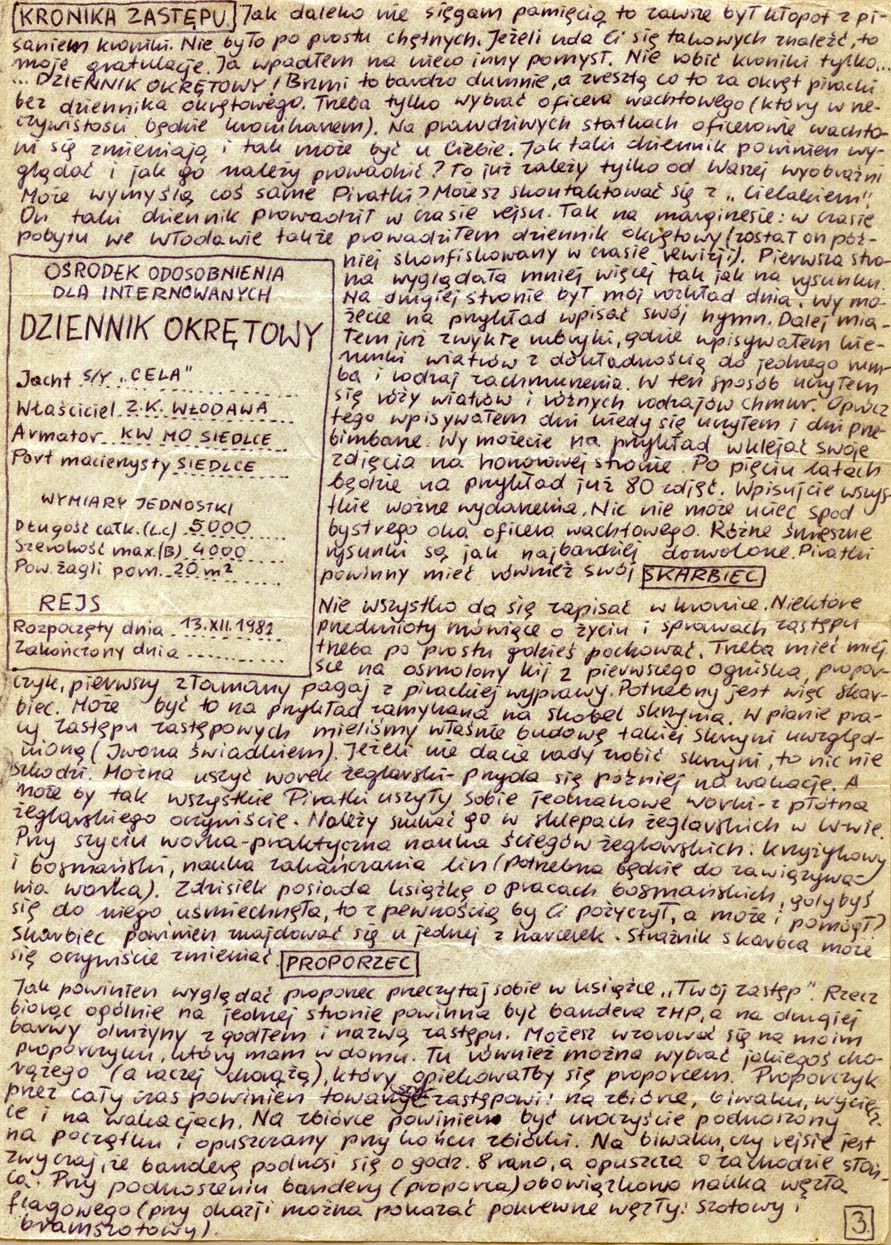 KRONIKA ZASTĘPU. Jak daleko nie sięgam pamięcią to zawsze był kłopot z pi-
saniem kroniki. Nie było po prostu chętnych. Jeżeli uda Ci się takowych znaleźć, to
moje gratulacje. Ja wpadłem na nieco inny pomysł. Nie robić kroniki tylko...
... DZIENNIK OKRĘTOWY! Brzmi to bardzo dumnie, a zresztą co to za okręt piracki
bez dziennika okrętowego. Trzeba tylko wybrać oficera wachtowego (który w rze-
czywistości będzie kronikarzem). Na prawdziwych statkach oficerowie wachto-
wi się zmieniają i tak może być u Ciebie. Jak taki dziennik powinien wy-
glądać i jak go należy prowadzić? To już zależy tylko od Waszej wyobraźni
Może wymyślą coś same Piratki? Możesz skontaktować się z „Cielakiem".
On taki dziennik prowadził w czasie rejsu. Tak na marginesie: w czasie
pobytu we Włodawie także prowadziłem dziennik okrętowy (został on póź-
niej skonfiskowany w czasie rewizji). Pierwsza stro-
na wyglądała mniej więcej tak jak na rysunku.
Na drugiej stronie był mój rozkład dnia. Wy mo-
żecie na przykład wpisać swój hymn. Dalej mia-
łem już zwykłe rubryki, gdzie wpisywałem kie-
runki wiatrów z dokładnością do jednego rum-
ba i rodzaj zachmurzenia. W ten sposób uczyłem
się róży wiatrów i różnych rodzajów chmur. Oprócz
tego wpisywałem dni kiedy się uczyłem i dni prze-
bimbane. Wy możecie na przykład wklejać swoje
zdjęcia na honorowej stronie. Po pięciu latach
będzie na przykład już 80 zdjęć. Wpisujcie wszys-
tkie ważne wydarzenia. Nic nie może uciec spod
bystrego oka oficera wachtowego. Różne śmieszne
rysunki są jak najbardziej dozwolone. Piratki
powinny mieć również swój SKARBIEC
OŚRODEK ODOSOBNIENIA
DLA INTERNOWANYCH
DZIENNIK OKRĘTOWY
Jacht S/Y „CELA"
Właściciel Z.K. WŁODAWA
Armator KW MO SIEDLCE
Port macierzysty SIEDLCE
WYMIARY JEDNOSTKI
Długość całk. (Lc) 5000
Szerokość max. (B) 4000
Pow. żagli pom. 20 m²
REJS
Rozpoczęty dnia 13.XII.1981
Zakończony dnia
Nie wszystko da się zapisać w kronice. Niektóre
przedmioty mówiące o życiu i sprawach zastępu
trzeba po prostu gdzieś pochować. Trzeba mieć miej
sce na osmolony kij z pierwszego ogniska, propor-
czyk, pierwszy złamany pagaj z pirackiej wyprawy. Potrzebny jest więc skar-
biec. Może być to na przykład zamykana na skobel skrzynia. W planie pra-
cy zastępu zastępowych mieliśmy właśnie budowę takiej skrzyni uwzględ-
nioną (Iwona świadkiem). Jeżeli nie dacie rady zrobić skrzyni, to nic nie
szkodzi. Można uszyć worek żeglarski - przyda się później na wakacje. A
może by tak wszystkie Piratki uszyły sobie jednakowe worki - z płótna
żeglarskiego oczywiście. Należy szukać go w sklepach żeglarskich w W-wie.
Przy szyciu worka - praktyczna nauka ściegów żeglarskich: krzyżykowy
i bosmański, nauka zakańczania lin (potrzebna będzie do zawiązywa-
nia worka). Zdzisiek posiada książkę o pracach bosmańskich, gdybyś
się do niego uśmiechnęła, to z pewnością by Ci pożyczył, a może i pomógł?
Skarbiec powinien znajdować się u jednej z harcerek. Strażnik skarbca może
się oczywiście zmieniać. PROPORZEC
Jak powinien wyglądać proporzec przeczytaj sobie w książce „Twój zastęp". Rzecz
biorąc ogólnie na jednej stronie powinna być bandera ZHP, a na drugiej
barwy drużyny z godłem i nazwą zastępu. Możesz wzorować się na moim
proporczyku, który mam w domu. Tu również można wybrać jakiegoś cho-
rążego (a raczej chorążą), który opiekowałby się proporcem. Proporczyk
przez cały czas powinien towarzyszyć zastępowi: na zbiórce, biwaku, wyciecz-
ce i na wakacjach. Na zbiórce powinien być uroczyście podnoszony
na początku i opuszczany przy końcu zbiórki. Na biwaku, czy rejsie jest
zwyczaj, że banderę podnosi się o godz. 8 rano, a opuszcza o zachodzie słoń-
ca. Przy podnoszeniu bandery (proporca) obowiązkowo nauka węzła
flagowego (przy okazji można pokazać pokrewne węzły: szotowy i
bramszotowy).
3